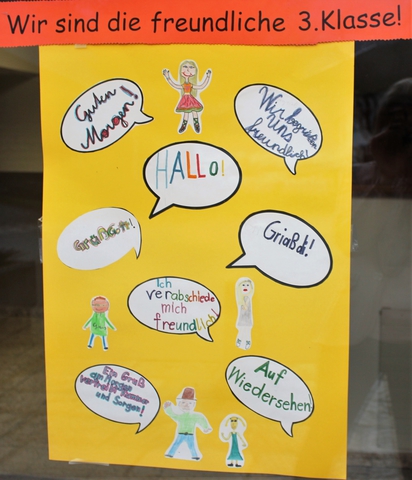 Wir sind die freundliche 3.Klasse!
Guten
Morgen!
Wir begrüßen
uns
freundlich!
HALLO!
Grüß Gott!
Griaß di!
Ich
verabschiede
mich
freundlich!
Ein Gruß
am Morgen
vertreibt Kummer
und Sorgen!
Auf
Wiedersehen